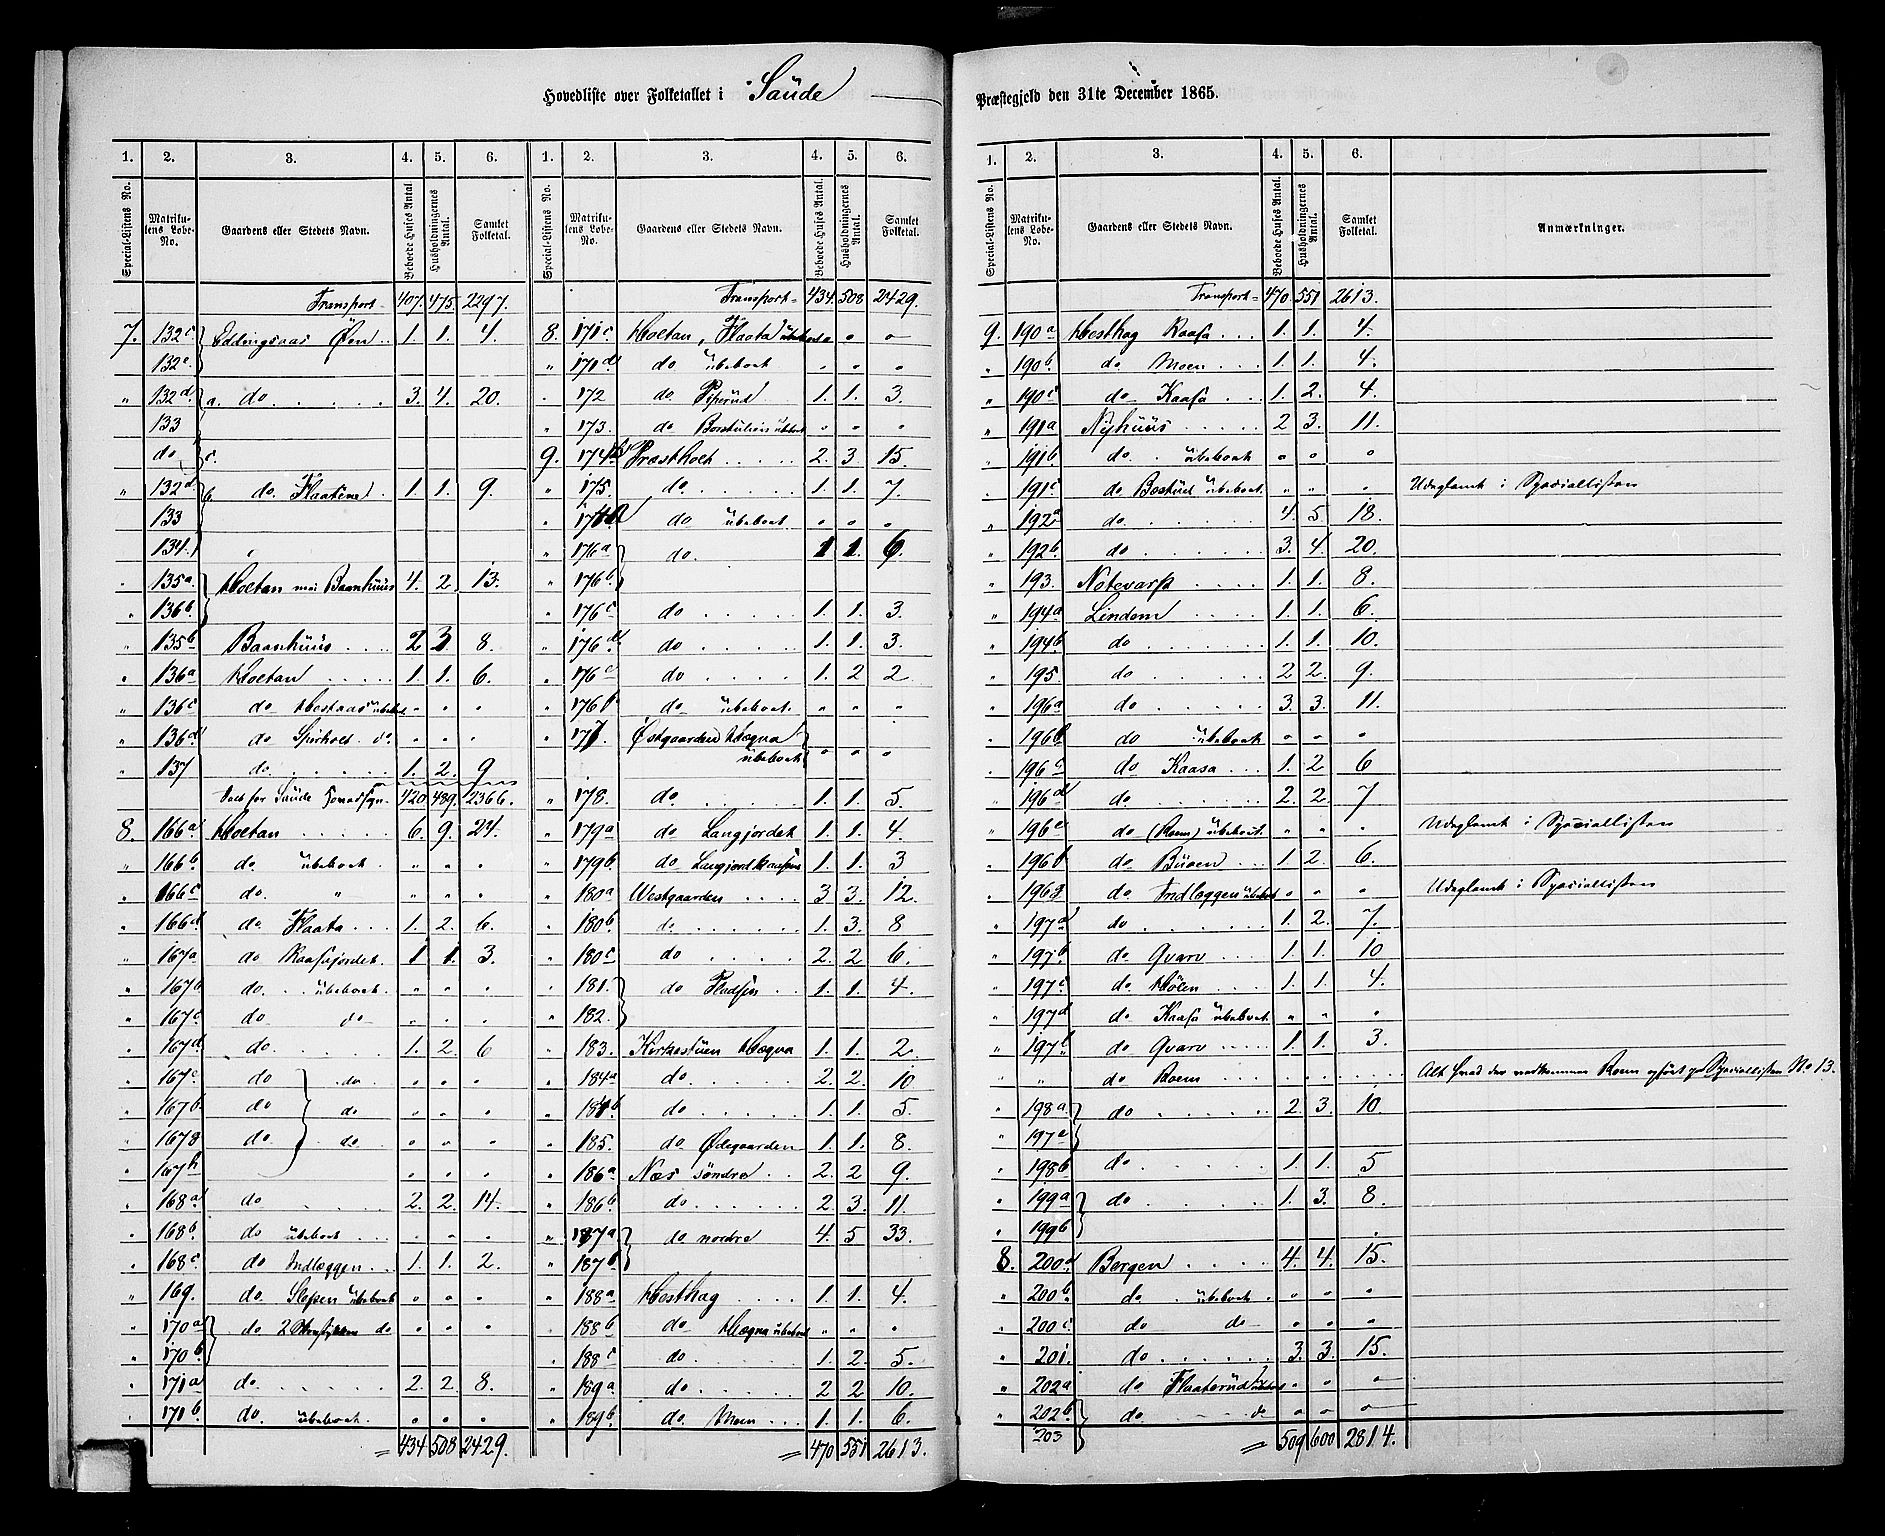 Hovedliste over Folketallet i Saude
Præstegjeld den 31te December 1865.
1. 2. 3. 4. 5. 6. 1. 2. 3. 4. 5. 6.
Special-Listens No. Matrikulens Løbe-No. Gaardens eller Stedets Navn. Beboede Huses Antal. Husholdningernes Antal. Samlet Folketal. Special-Listens No. Matrikulens Løbe-No. Gaardens eller Stedets Navn. Beboede Huses Antal. Husholdningernes Antal. Samlet Folketal.
Transport 407. 475. 2297.
7. 132c Eddingsaas Øen 1. 1. 4.
132e
" 132d a. do 3. 4. 20.
133
do c.
" 132d b. do Flaatene 1. 1. 9.
133
134.
" 135a Hoetan Baanhuus 4. 2. 13.
" 136b.
" 135b Baanhuus 2 3. 8.
" 136a Hoetan 1. 1. 6.
" 136c do Hestaas ubeboet " " "
" 136d do Spirholt do " " "
" 137 do 1. 2. 9
Saude 420 489. 2366.
8. 166a Hoetan 6. 9. 24.
" 166b do ubeboet " " "
" 166c do " " " "
" 166d do Flaata 1. 2. 6.
" 167a do Kaasajordet 1 1. 3.
" 167b do ubeboet " " "
" 167c do do " " "
" 167d do 1. 2. 6
" 167e do do " " "
" 167f. do do " " "
" 167g do do " " "
" 167h " " "
" 168a do 2. 2. 14.
" 168b do ubeboet " " "
" 168c do Indlæggen 1. 1. 2.
" 169. do Slepen ubeboet " " "
" 170a do do " " "
" 170b
" 171a do 2. 2. 8.
" 171b do ubeboet " " "
= 434 508 2429.
Transport 434. 508 2429.
8. 171c Hoetan, Flaata ubeboet " " "
" 171d do ubeboet " " "
" 172 do Piperud 1. 1. 3.
" 173. do ubeboet " " "
9. 174b Præstholt 2. 3 15.
" 175. do 1. 1. 7.
" 174a do ubeboet " " "
" 176a do 1 1. 6.
" 176b
" 176c do 1. 1. 3.
" 176d do 1. 1. 3.
" 176e do 1. 2 2
" 176f do ubeboet " " "
177 Østgaarden Hægna
ubeboet " " "
" 178. do 1. 1. 5.
" 179a do Langjordet 1. 1. 4.
" 179b do 1. 1. 3
" 180a Westgaarden 3 3. 12.
" 180b do 1. 3. 8
" 180c do 2. 2 6.
" 181. do Pladsen 1. 1. 4.
" 182.
" 183. Kirkestuen Hægna 1. 1. 2.
" 184a do 2. 2. 10
" 184b do 1. 1. 5.
" 185. do Ødegaarden 1. 1. 8.
" 186a Næs søndre 2. 2 9.
" 186b do 2. 3. 11.
" 187a do nordre 4. 5 33.
" 187b
" 188a Hesthag 1. 1. 4.
" 188b do Hægna ubeboet " " "
" 188c do 1. 2. 5.
" 189a do 2 2 10.
" 189b do. Moen 1. 1. 6.
= 470 551 2613.
1. 2. 3. 4. 5. 6.
Special-Listens No. Matrikulens Løbe-No. Gaardens eller Stedets Navn. Beboede Huses Antal. Husholdningernes Antal. Samlet Folketal. Anmærkninger.
Transport 470. 551 2613.
9. 190a Hesthag Kaasa 1. 1. 4.
" 190b do Moen 1. 1. 4.
" 190c do Kaasa 1. 2. 4.
" 191a Nyhuus 2 3. 11.
" 191b do ubeboet " " "
" 191c do ubeboet " " " Udeglemt i Speciallisten
" 192a do 4. 5. 18.
" 192b do 3. 4. 20.
" 193. Notevarp 1. 1. 8.
" 194a Lindem 1. 1. 6.
" 194b do 1. 1. 10.
" 195 do 2 2. 9.
" 196a do 3. 3. 11.
" 196b do ubeboet " " "
" 196c do Kaasa 1. 2 6
" 196d do 2. 2. 7
" 196e do (Roen) ubeboet " " " Udeglemt i Speciallisten
" 196f do Buoen 1. 2. 6.
" 196g do Indlæggen ubeboet " " " Udeglemt i Speciallisten
" 197a do 1. 2. 7.
" 197b do Qvarv 1. 1. 10
" 197c do Hølen 1. 1. 4.
" 197d do Kaasa ubeboet " " "
" 197e do Qvarv 1. 1. 3.
" " do Roem Alt hvad der vedkommer Roem opført paa Speciallisten No 13.
" 198a. do 2. 3. 10.
" 197e
" 198b do 1. 1. 5
" 199a do 1. 3. 8.
" 199b
8. 200a Bergen 4. 4. 15.
" 200b do ubeboet " " "
" 200c do do " " "
" 201. do 3. 3. 15.
" 202a do Flaaterud ubeboet " " "
" 202b do do " " "
203
= 509 600 2814.